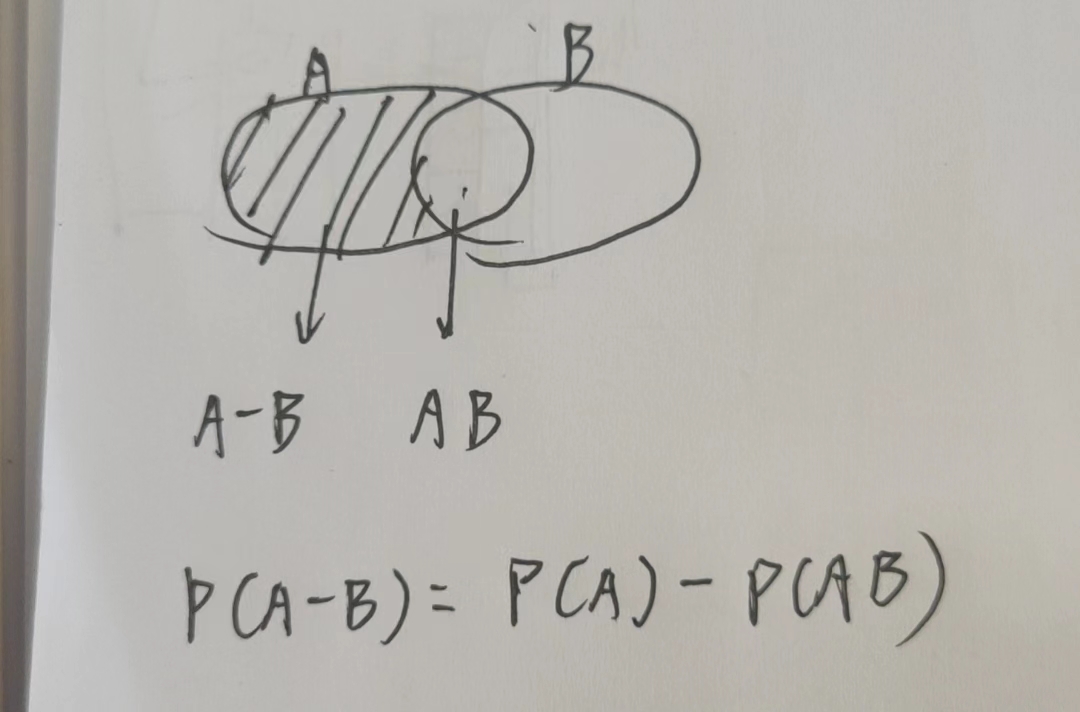 A B
A-B AB
P(A-B)= P(A)-P(AB)